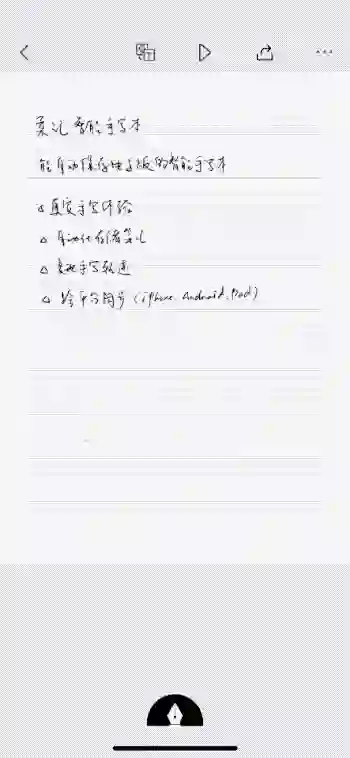 柔记智能手写本
能自动保存电子版的智能手写本
△真实手写体验
△自动化存储笔记
△复现手写轨迹
△跨平台同步(iPhone. Android. Pad)